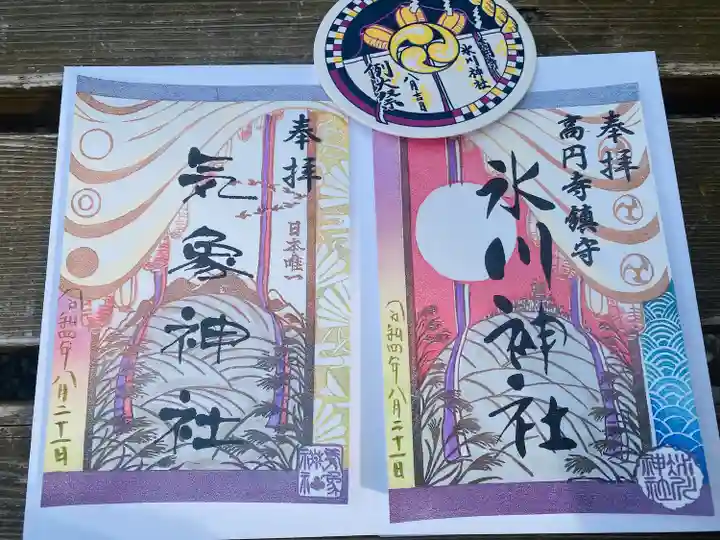 例祭
八月
氷川神社
奉拝
日本唯一
気象神社
令和四年 八月二十一日
奉拝
高円寺鎮守
氷川神社
令和四年 八月二十一日